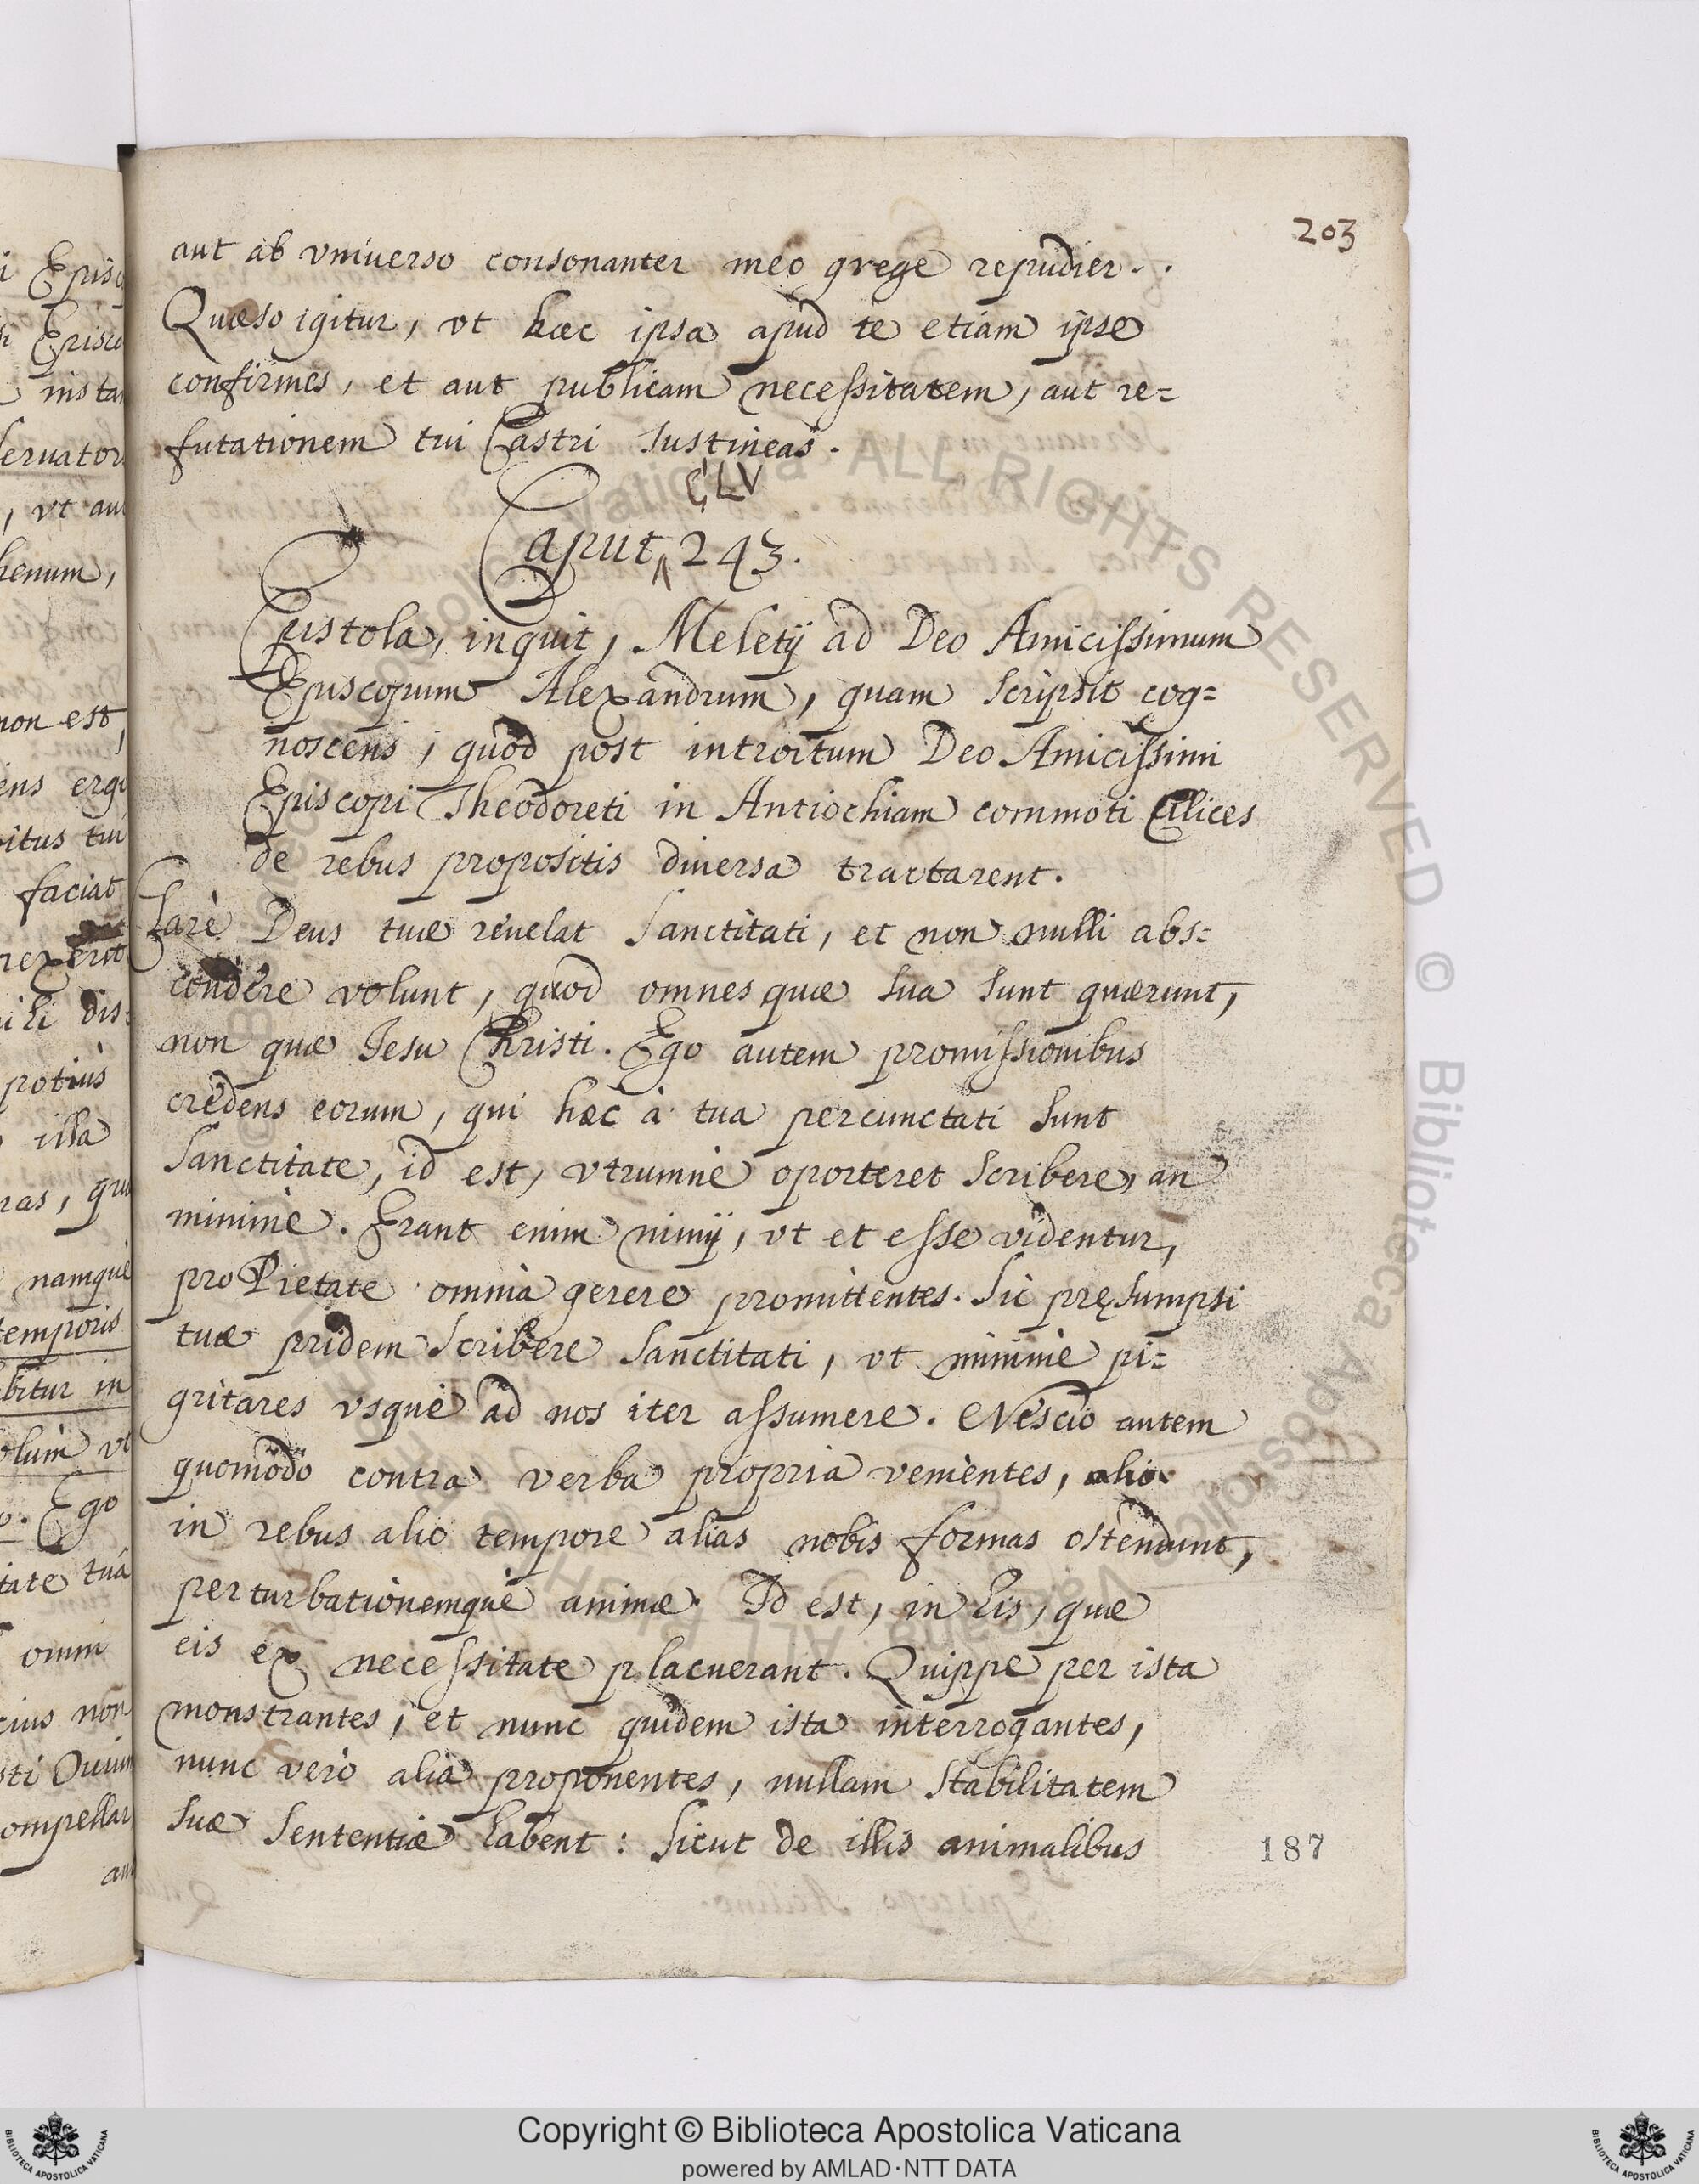 203
aut ab vniuerso consonanter meo grege repudier..
Quæso igitur, vt hæc ipsa apud te etiam ipse
confirmes, et aut publicam necessitatem, aut re=
futationem tui Castri sustineas.
CLV
Caput 243.
Epistola, inquit, Meletij ad Deo Amicissimum
Episcopum Alexandrum, quam scripsit cog=
noscens, quod post introitum Deo Amicissimi
Episcopi Theodoreti in Antiochiam commoti Cilices
de rebus propositis diuersa tractarent.
Clarè Deus tuæ reuelat Sanctitati, et non nulli abs=
condere volunt, quod omnes quæ sua sunt quærunt,
non quæ Iesu Christi. Ego autem promissionibus
credens eorum, qui hæc à tua percunctati sunt
Sanctitate, id est, vtrumne oporteret scribere, an
minimè. Erant enim nimij, vt et esse videntur,
pro Pietate omnia gerere promittentes. Sic pręsumpsi
tuæ pridem scribere Sanctitati, vt minimè pi=
gritares vsque ad nos iter assumere. Nescio autem
quomodo contra verba propria venientes, alio
in rebus alio tempore alias nobis formas ostendunt,
perturbationemque animæ. Id est, in his, quæ
eis ex necessitate placuerant. Quippe per ista
monstrantes, et nunc quidem ista interrogantes,
nunc verò alia proponentes, nullam stabilitatem
suæ sententiæ habent: sicut de illis animalibus
187
Copyright © Biblioteca Apostolica Vaticana
powered by AMLAD·NTT DATA